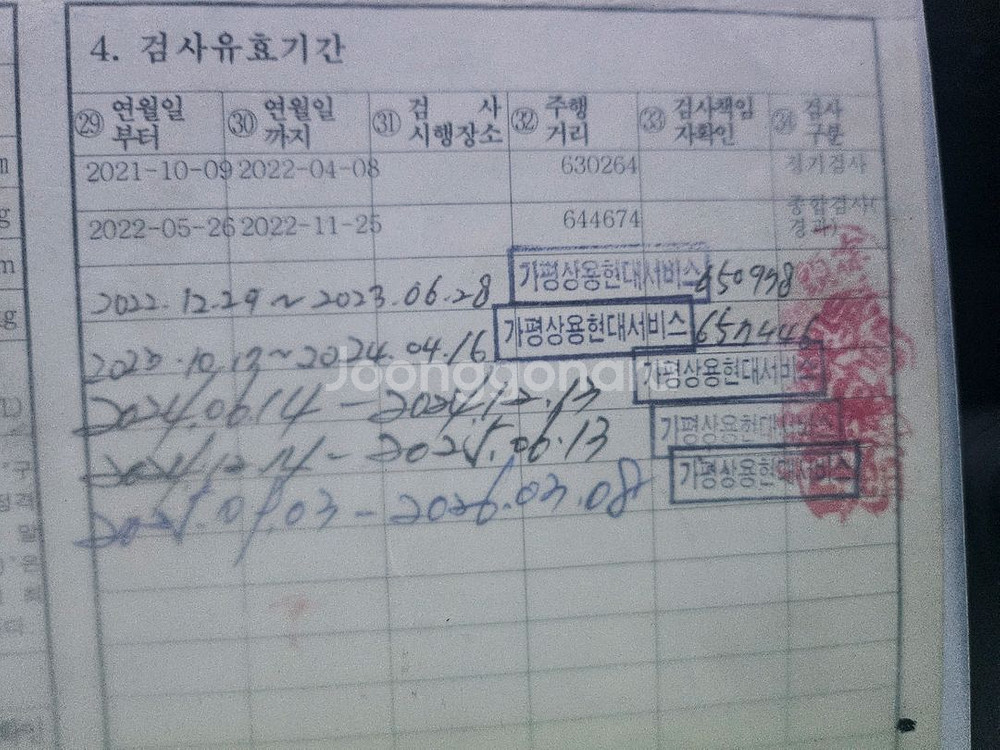 4. 검사유효기간
㉙ 연월일 부터 ㉚ 연월일 까지 ㉛ 검 사 시행장소 ㉜ 주행 거리 ㉝ 검사책임 자확인 ㉞ 검사 구분
2021-10-09 2022-04-08 630264 정기검사
2022-05-26 2022-11-25 644674 종합검사(경과)
2022.12.29 ~ 2023.06.28 가평상용현대서비스 650998
2023.10.13 ~ 2024.04.16 가평상용현대서비스
2024.06.14 - 2024.12.13 가평상용현대서비스
2024.12.14 - 2025.06.13 가평상용현대서비스
03 - 2026.03.08 가평상용현대서비스
Joonggonara